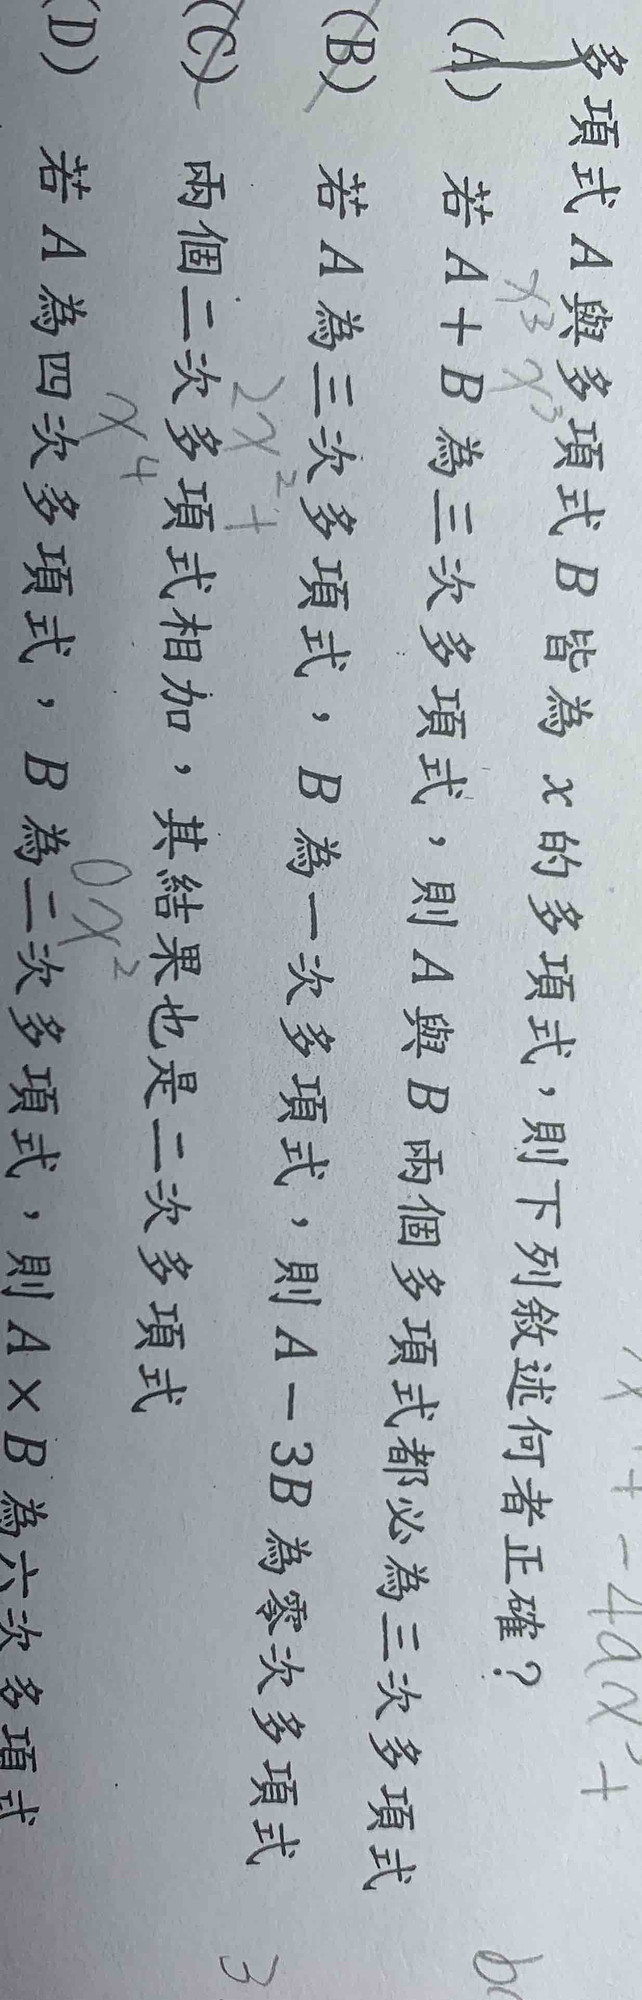 多項式 A 與多項式 B 皆為 x 的多項式，則下列敘述何者正確？
(A) 若 A + B 為三次多項式，則 A 與 B 兩個多項式都必為三次多項式
(B) 若 A 為三次多項式，B 為一次多項式，則 A − 3B 為零次多項式
(C) 兩個二次多項式相加，其結果也是二次多項式
(D) 若 A 為四次多項式，B 為二次多項式，則 A × B 為六次多項式
x³ x³
2x² +
x⁴
0x²
+ -4ax³ +
3